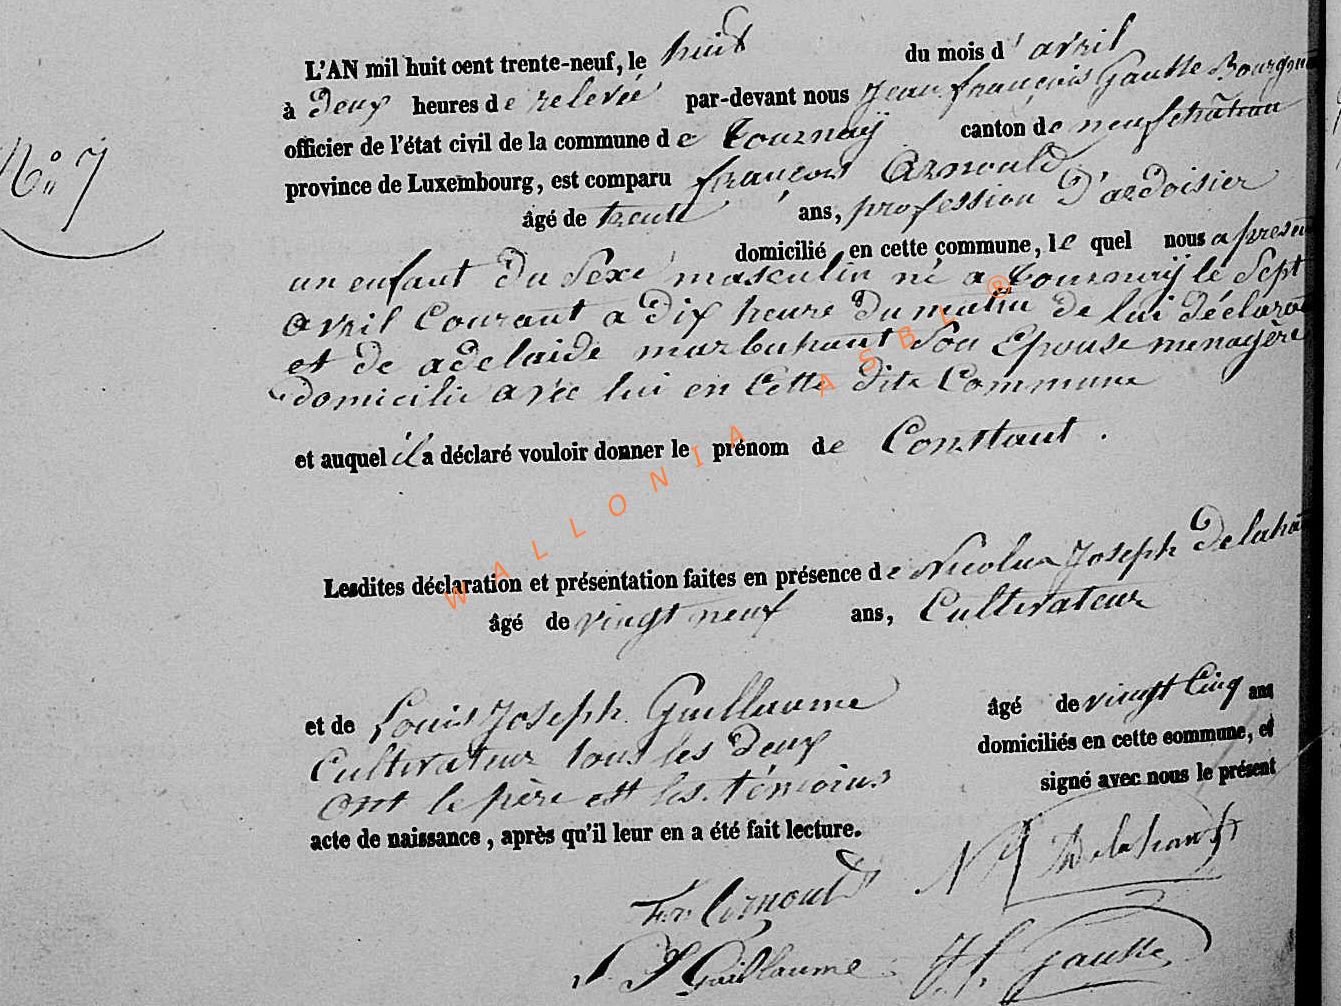 L'AN mil huit cent trente-neuf, le huit du mois d'avril
à Deux heures de relevée par-devant nous Jean françois Gausse Bourgm
officier de l'état civil de la commune de Tournaÿ canton de neufchateau
N° 7
province de Luxembourg, est comparu françois Arnould
âgé de trente ans, profession D'ardoisier
domicilié en cette commune, lequel nous a présen
un enfant Du Sexe masculin né a Tournaÿ le Sept
Avril Courant a Dix heure Du matin De lui déclara
et De adelaide marbehant Son Epouse menagère
domicilie avec lui en Cette Dite Commune
et auquel il a déclaré vouloir donner le prénom de Constant.
Lesdites déclaration et présentation faites en présence de Nicolas Joseph Delaha
âgé de vingt neuf ans, Cultivateur
et de Louis Joseph Guillaume âgé de vingt Cinq ans
Cultivateur tous les Deux domiciliés en cette commune, et
Ont le père et les témoins signé avec nous le présent
acte de naissance, après qu'il leur en a été fait lecture.
Fr. Arnould N J Delahaut
L J Guillaume J f. Gausse
WALLONIA ASBL ®